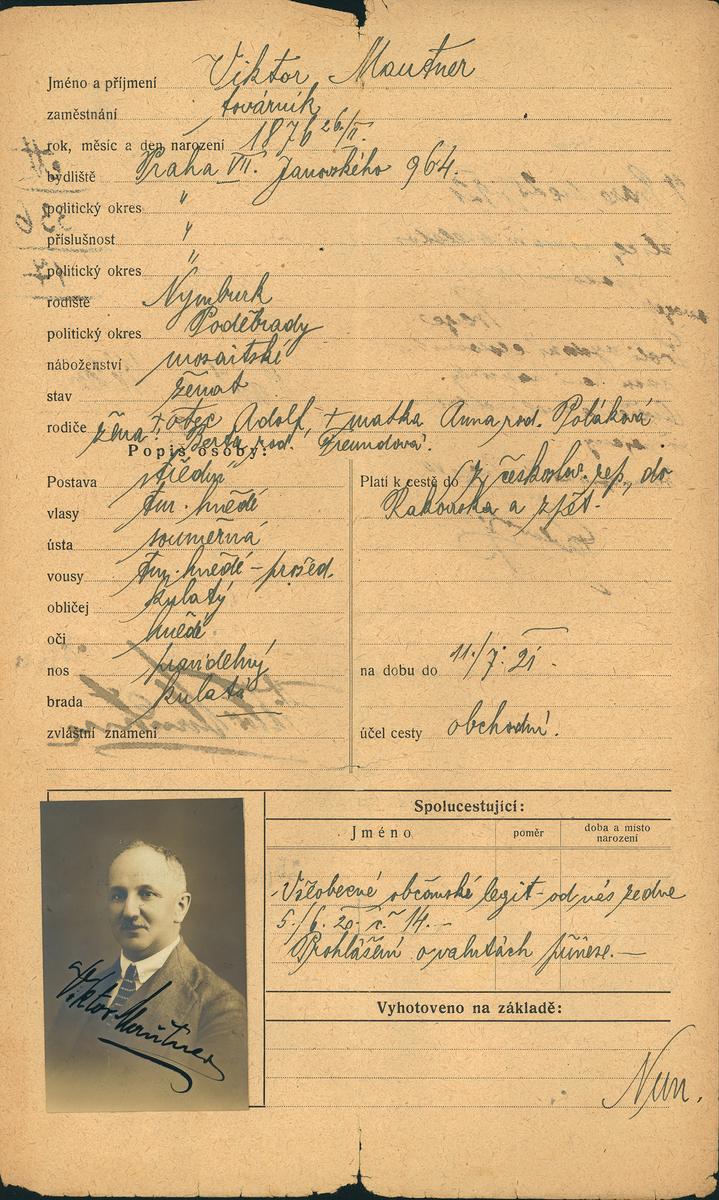 Jméno a příjmení Viktor Mautner
zaměstnání továrník
rok, měsíc a den narození 1876 26/II.
bydliště Praha VII. Janovského 964.
politický okres "
příslušnost "
politický okres "
rodiště Nymburk
politický okres Poděbrady
náboženství mosaitské
stav ženat
rodiče + otec Adolf, + matka Anna rod. Poláková
žena: Berta rod. Freundová.
Popis osoby:
Postava střední
vlasy tm. hnědé
ústa souměrná
vousy tm. hnědé - prošed.
obličej kulatý
oči hnědé
nos pravidelný
brada kulatá
zvláštní znamení
Platí k cestě do z českoslov. rep., do
Rakouska a zpět.
na dobu do 11./7. 21.
účel cesty obchodní.
Spolucestující:
Jméno poměr doba a místo narození
Všeobecné občanské legit. od nás ze dne
5./6. 20. č. 14.-
Prohlášení o valutách přinese.—
Vyhotoveno na základě:
Viktor Mautner